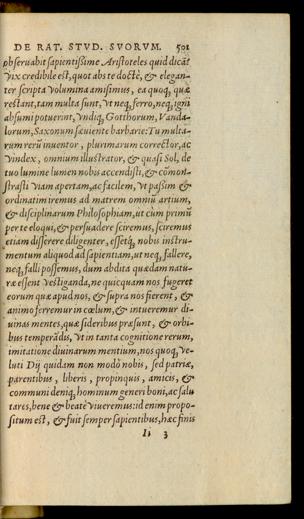 DE RAT. STVD. SVORVM. 501
obseruabit sapientißime Aristoteles quid dicāt
vix credibile est, quot abs te doctè, & elegan-
ter scripta volumina amisimus, ea quoq; quæ
restant, tam multa sunt, vt neq; ferro, neq; igni
absumi potuerint, vndiq; Gotthorum, Vanda-
lorum, Saxonum sæuiente barbarie: Tu multa-
rum rerū inuentor, plurimarum corrector, ac
vindex, omnium illustrator, & quasi Sol, de
tuo lumine lumen nobis accendisti, & cōmon-
strasti viam apertam, ac facilem, vt paßim &
ordinatim iremus ad matrem omniū artium,
& disciplinarum Philosophiam, ut cùm primū
per te eloqui, & persuadere sciremus, sciremus
etiam disserere diligenter, essetq; nobis instru-
mentum aliquod ad sapientiam, ut neq; fallere,
neq; falli possemus, dum abdita quædam natu-
ræ essent vestiganda, ne quicquam nos fugeret
eorum quæ apud nos, & supra nos fierent, &
animo ferremur in cœlum, & intueremur di-
uinas mentes, quæ sideribus præsunt, & orbi-
bus temperādis, vt in tanta cognitione rerum,
imitatione diuinarum mentium, nos quoq; ve-
luti Dij quidam non modò nobis, sed patriæ,
parentibus, liberis, propinquis, amicis, &
communi deniq; hominum generi boni, ac salu
tares, bene & beatè viueremus: id enim propo-
situm est, & fuit semper sapientibus, hæc finis
Ii 3